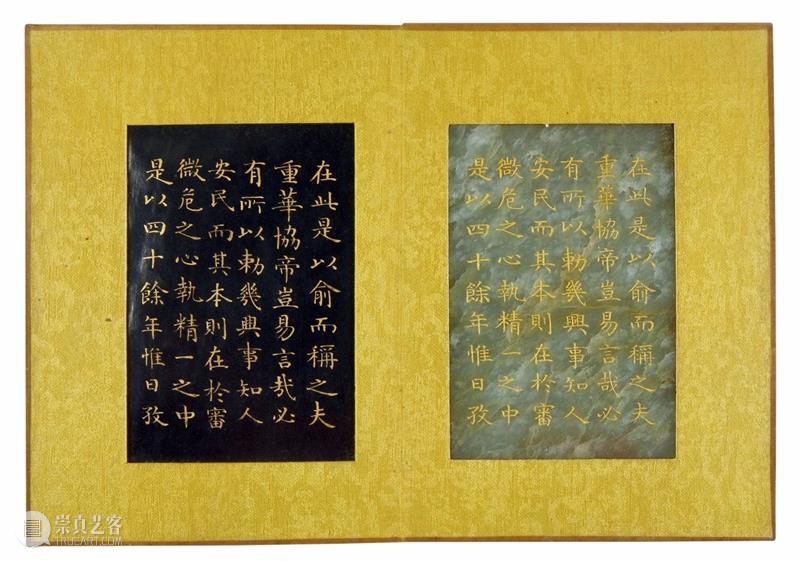 在此是以俞而稱之夫
重華協帝豈易言哉必
有所以勅幾興事知人
安民而其本則在於審
微危之心執精一之中
是以四十餘年惟日孜
在此是以俞而稱之夫
重華協帝豈易言哉必
有所以勅幾興事知人
安民而其本則在於審
微危之心執精一之中
是以四十餘年惟日孜
崇真艺客
TRUEART.COM